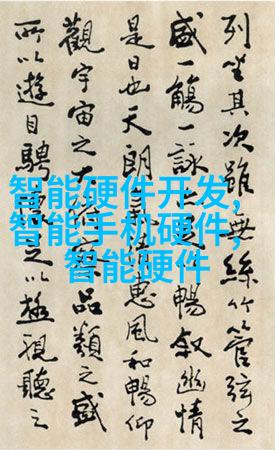 列坐其次雖無絲竹管弦之
盛一觴一詠暢敘幽情
是日也天朗清惠風和暢仰
觀宇宙之大品類之盛
所以遊目騁之以極視聽之
智能硬件开发,
智能手机硬件,
智能硬件